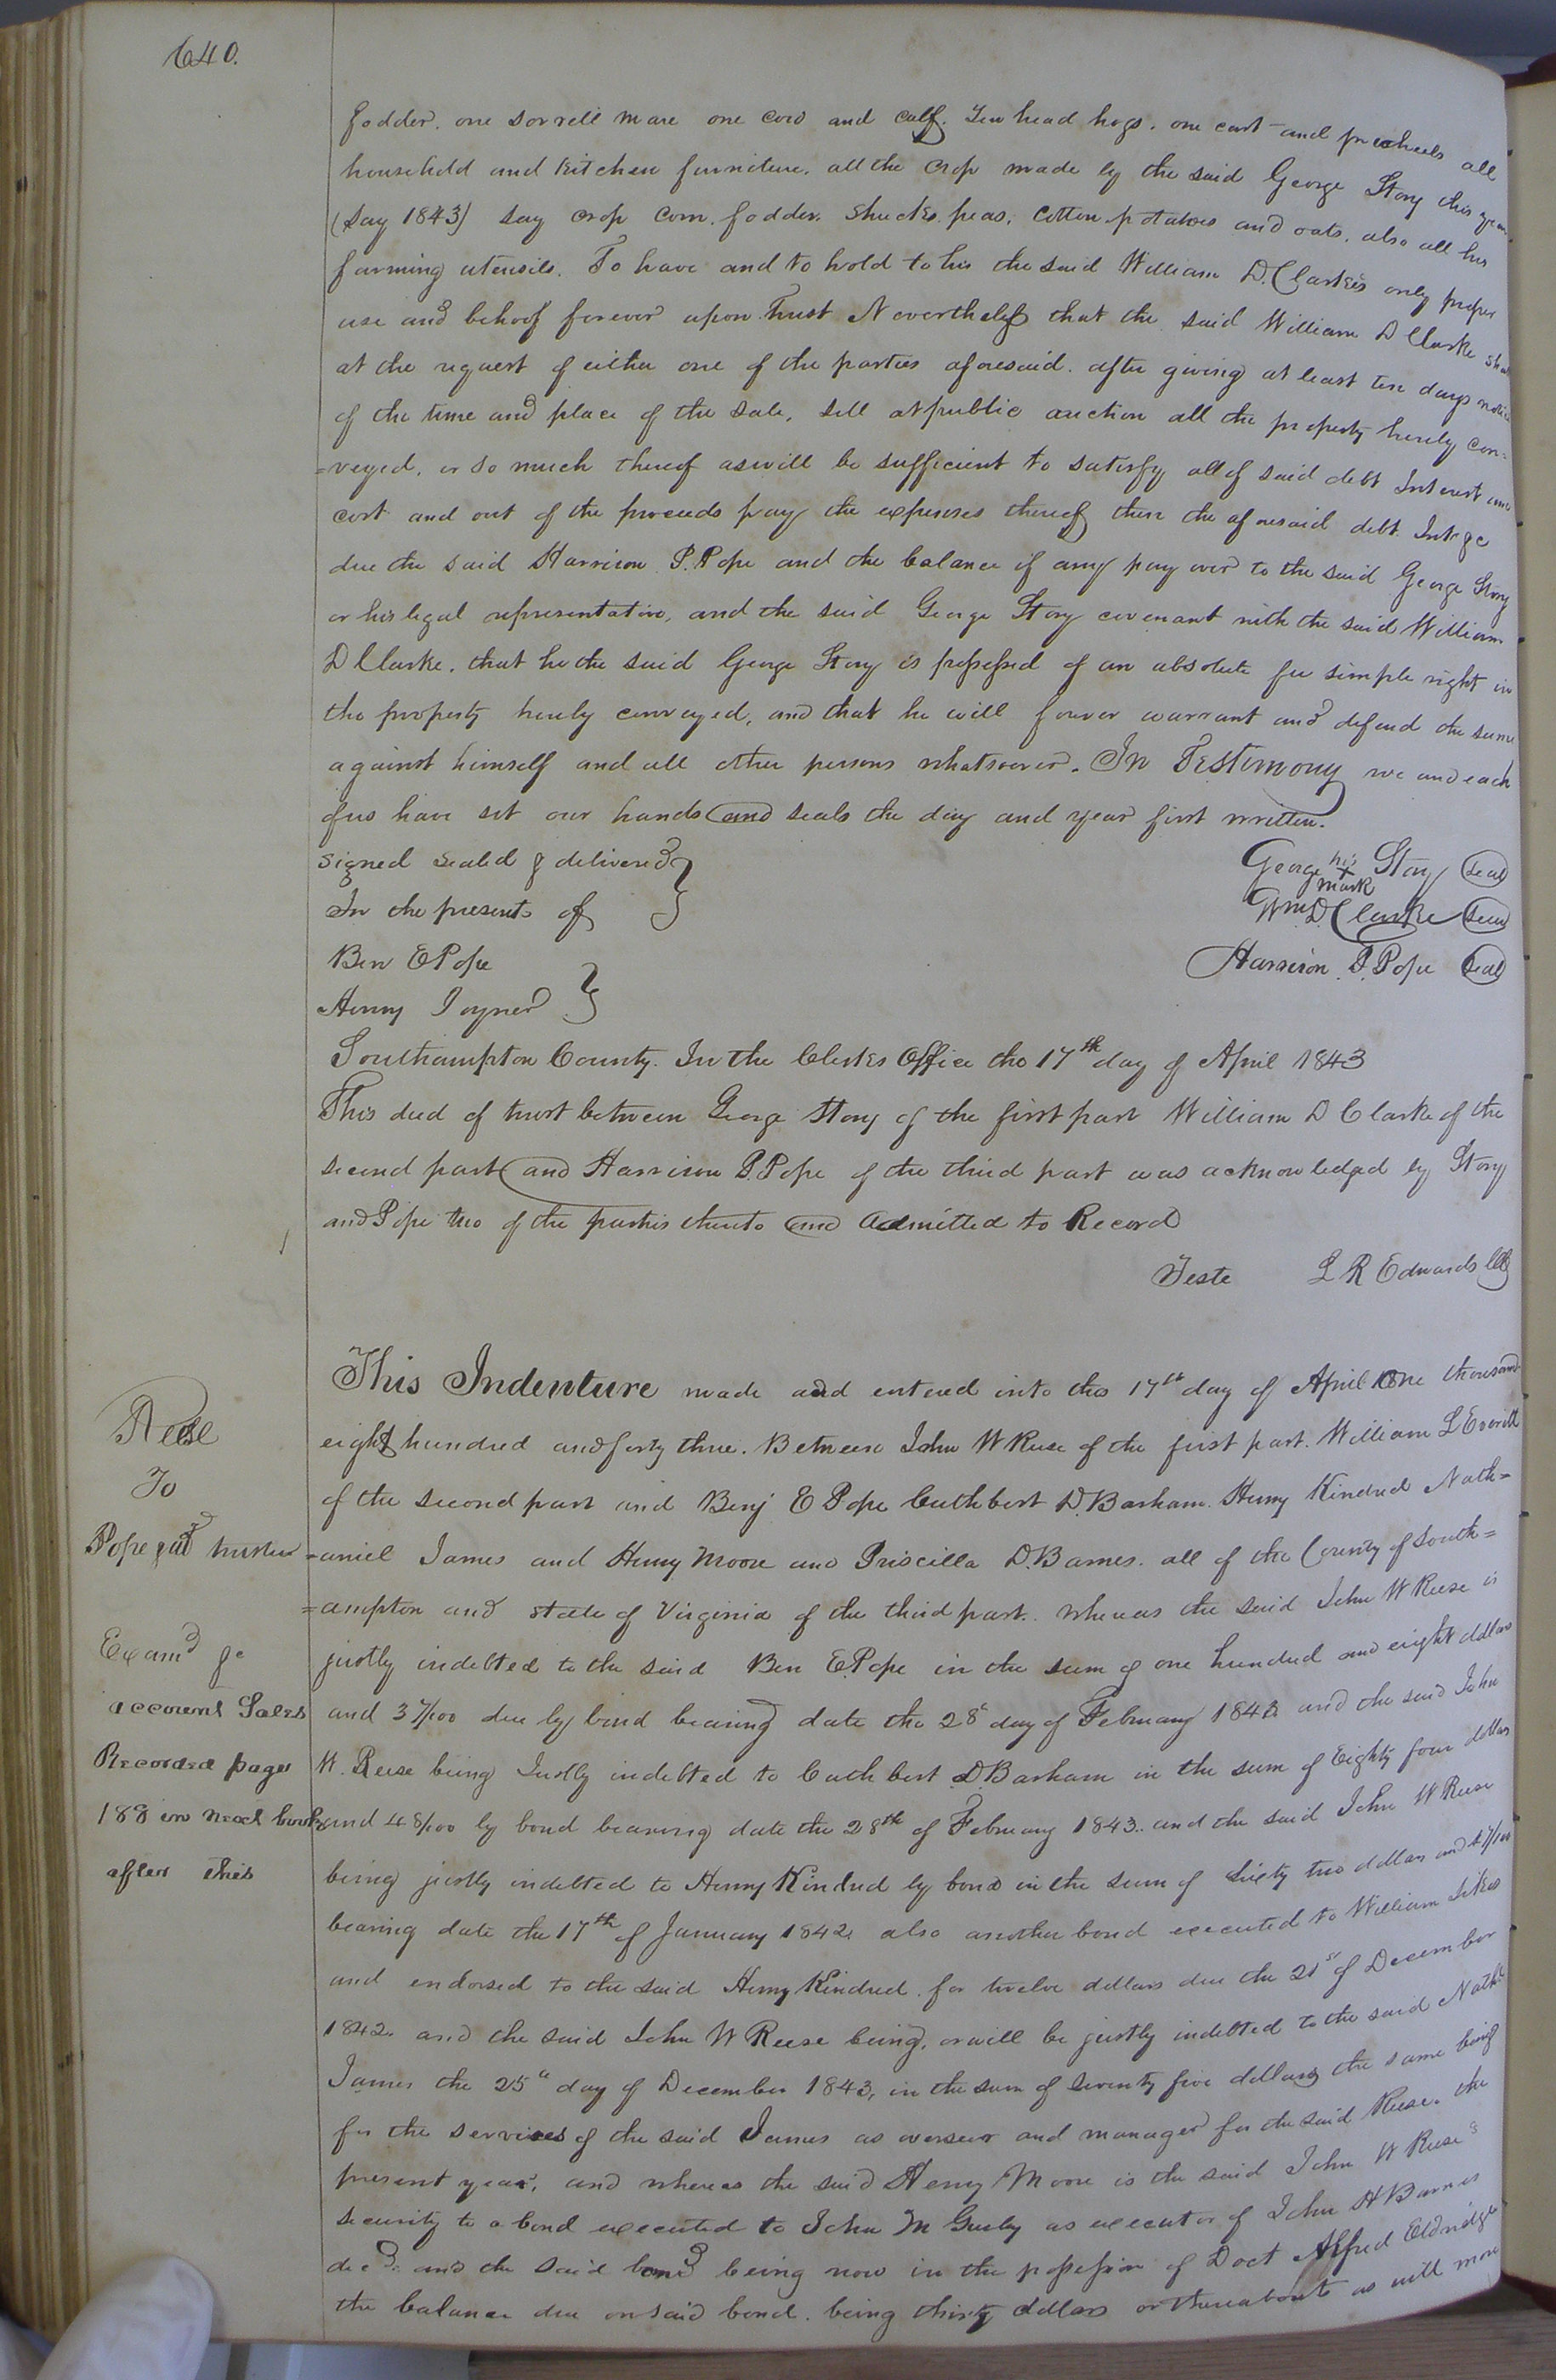 640.
fodder. one sorrell mare one cow and calf. Ten head hogs. one cart and wheels all
household and Kitchen furniture. all the crop made by the said George Story this year
(Say 1843) say crop corn. fodder. shucks. peas. Cotton. potatoes and oats. also all his
farming utensils. To have and to hold to his the said William D. Clarkes only proper
use and behoof forever upon Trust Nevertheless that the said William D Clarke shall
at the request of either one of the parties aforesaid. after giving at least ten days notice
of the time and place of the sale, sell at public auction all the property hereby con=
=veyed, or so much thereof as will be sufficient to satisfy all of said debt Interest and
cost and out of the proceeds pay the expenses thereof then the aforesaid debt. Int &c
due the said Harrison P. Pope and the balance if any pay over to the said George Story
or his legal representative, and the said George Story covenant with the said William
D Clarke. that he the said George Story is possessed of an absolute fee simple right in
the property hereby conveyed, and that he will forever warrant and defend the same
against himself and all other persons whatsoever. In Testimony we and each
of us have set our hands and seals the day and year first written.
Signed sealed & delivered
In the presents of
Ben E Pope
Henry Joyner
George his X mark Story Seal
Wm D Clarke Seal
Harrison P. Pope Seal
Southampton County. In the Clerkes Office the 17th day of April 1843
This deed of trust between George Story of the first part William D Clarke of the
second part and Harrison P. Pope of the third part was acknowledged by Story
and Pope two of the parties thereto and admitted to Record
Teste L R Edwards Clk
Reese
To
Pope &als trustee
Examd &c
account Sales
Recorded page
188 in next book
after this
This Indenture made and entered into this 17th day of April One thousand
eight hundred and forty three. Between John W Reese of the first part. William L Everitt
of the second part and Benj E Pope Cuthbert D. Barham. Henry Kindred Nath=
=aniel James and Henry Moore and Priscilla D. Barnes. all of the County of South=
=ampton and state of Virginia of the third part. whereas the said John W Reese is
justly indebted to the said Ben E. Pope in the sum of one hundred and eight dollars
and 37/100 due by bond bearing date the 28th day of February 1843 and the said John
W. Reese being Justly indebted to Cuthbert D Barham in the sum of Eighty four dollars
and 48/100 by bond bearing date the 28th of February 1843. and the said John W Reese
being justly indebted to Henry Kindred by bond in the sum of sixty two dollars and 47/100
bearing date the 17th of January 1842 also another bond executed to William Sikes
and endorsed to the said Henry Kindred for twelve dollars due the 21st of December
1842. and the said John W Reese being, or will be justly indebted to the said Nathl
James the 25th day of December 1843, in the sum of seventy five dollars the same being
for the services of the said James as overseer and manager for the said Reese. the
present year, and whereas the said Henry Moore is the said John W Reese's
security to a bond executed to John M Gurley as executor of John H Barnes
decd. and the said bond being now in the possession of Doct Alfred Eldridge
the balance due on said bond. being thirty dollars or thereabouts as will more